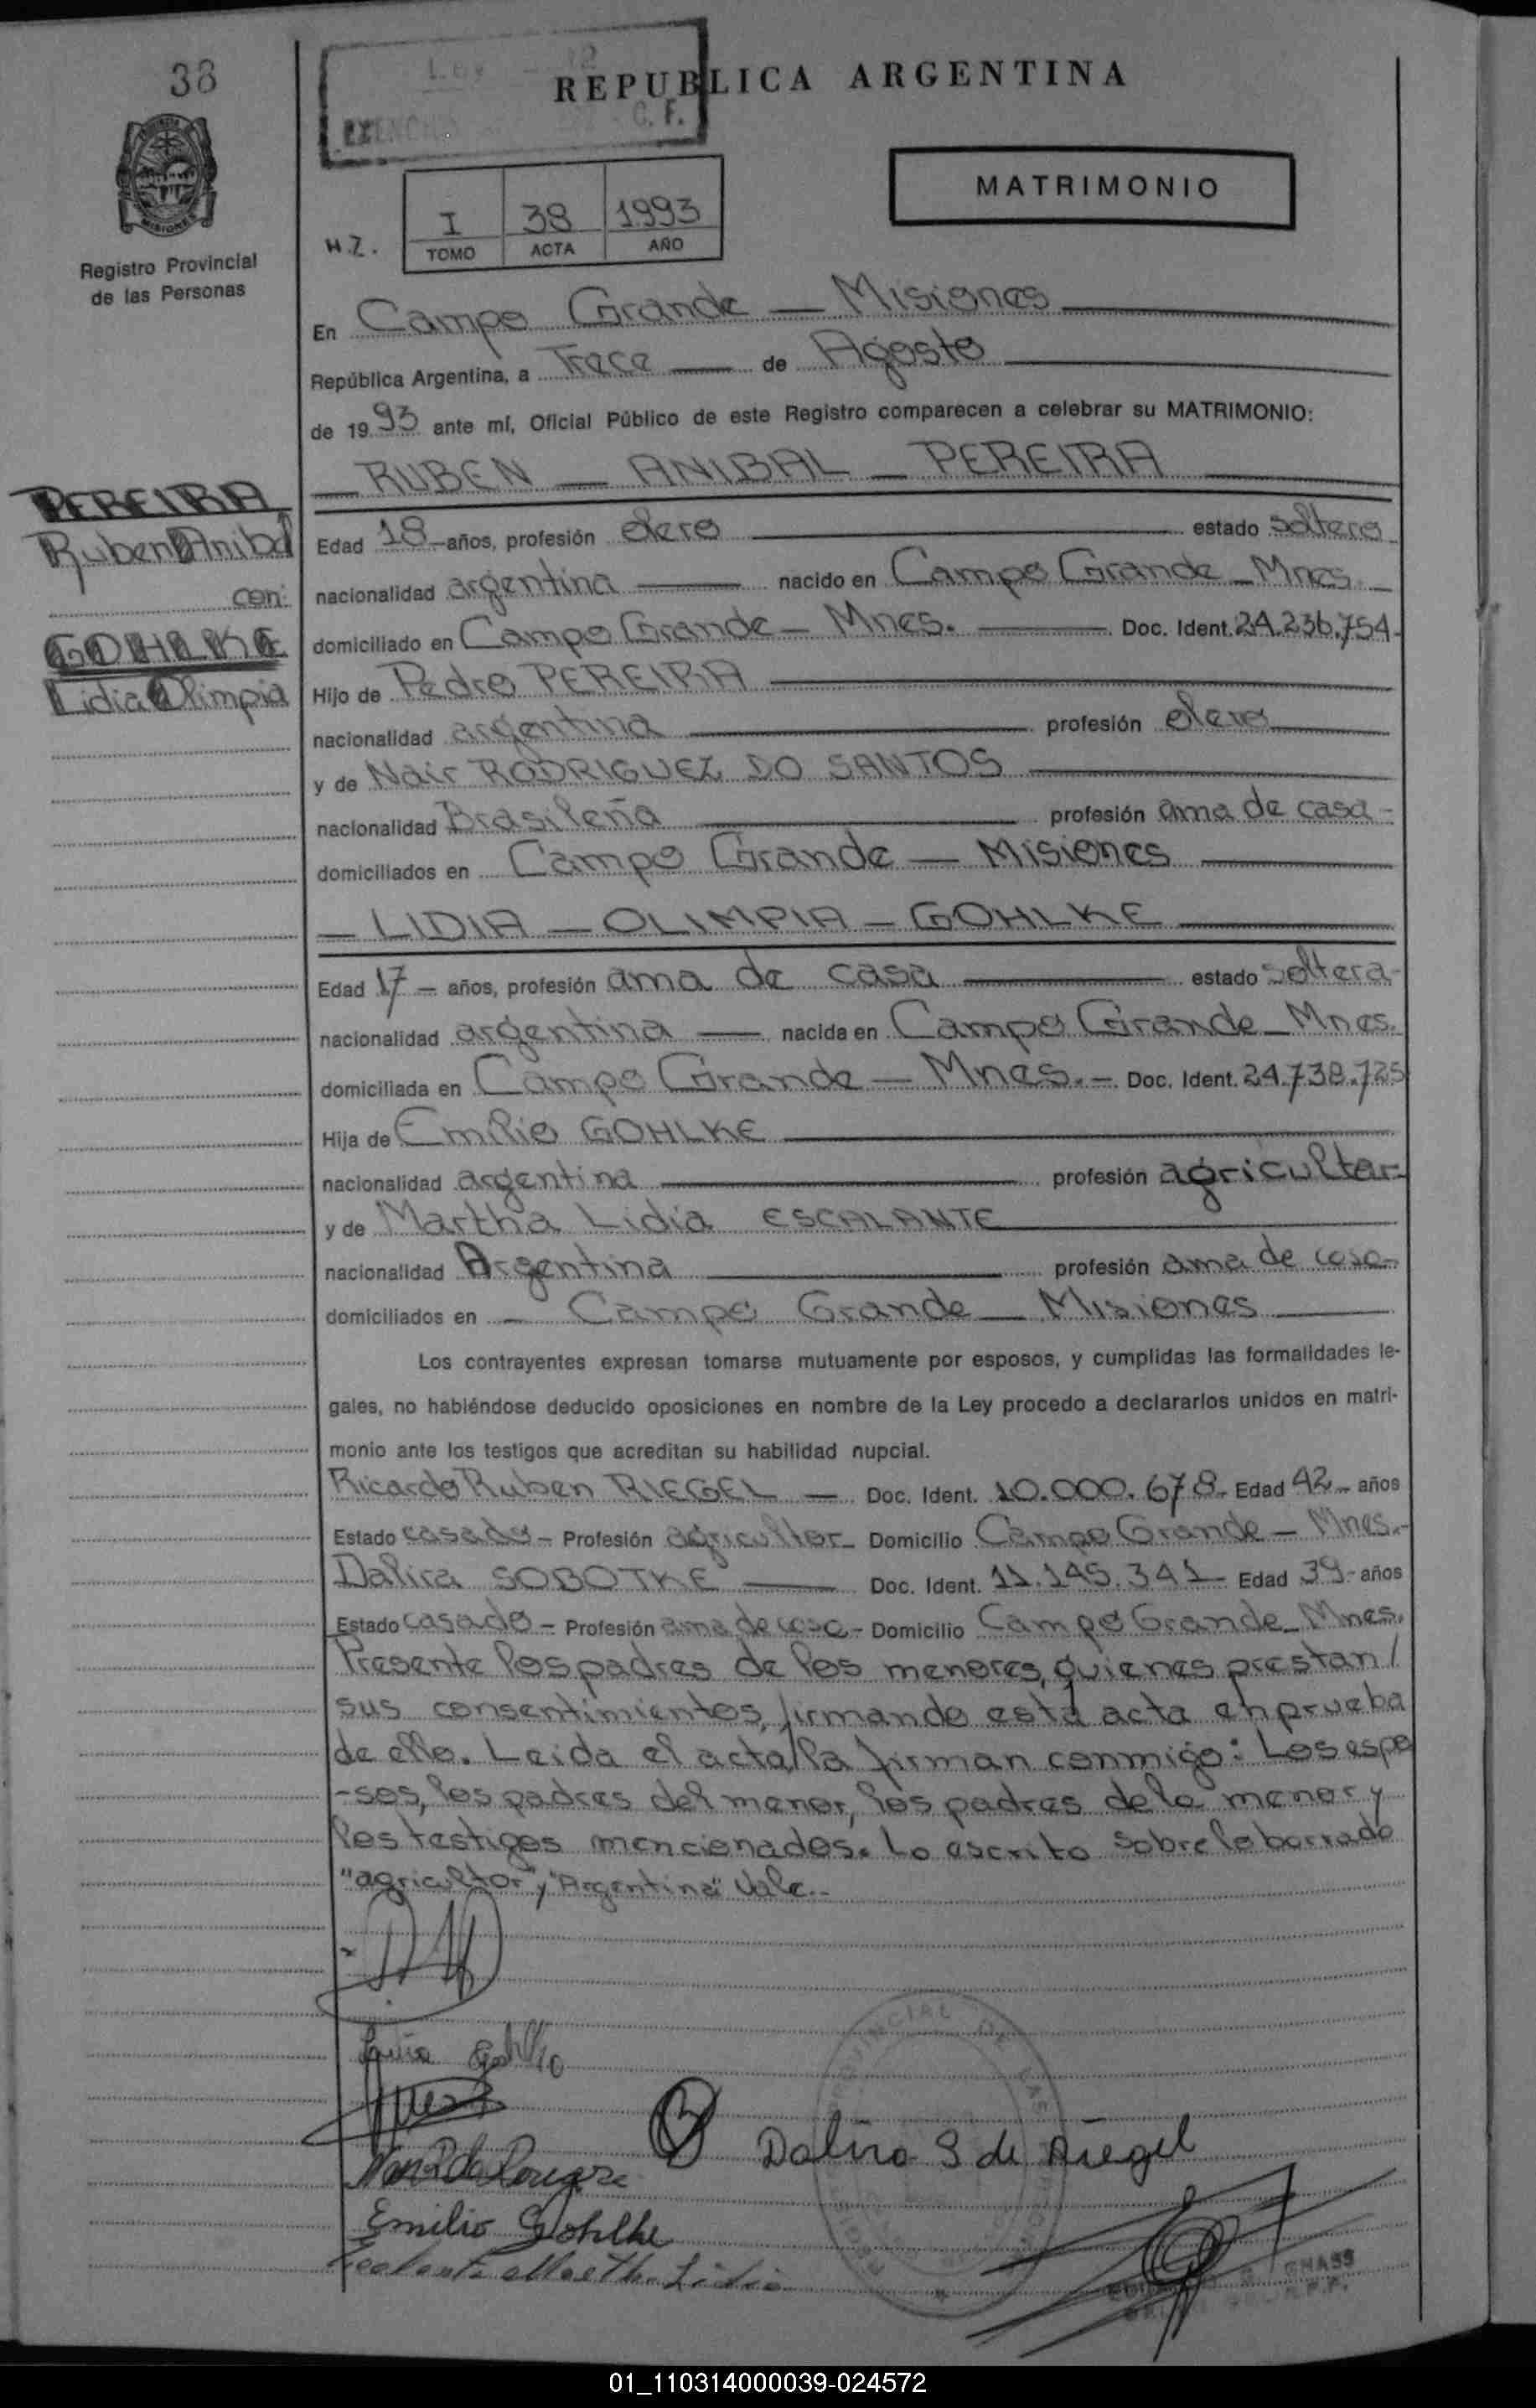 38
REPUBLICA ARGENTINA
C. F.
MATRIMONIO
H.Z.
I 38 1993
TOMO ACTA AÑO
Registro Provincial
de las Personas
En Campo Grande — Misiones
República Argentina, a Trece — de Agosto
de 1993 ante mí, Oficial Público de este Registro comparecen a celebrar su MATRIMONIO:
— RUBEN — ANIBAL — PEREIRA
PEREIRA
Ruben Anibal
con:
GOHLKE
Lidia Olimpia
Edad 18 – años, profesión olero estado soltero
nacionalidad argentina — nacido en Campo Grande – Mnes. –
domiciliado en Campo Grande – Mnes. — Doc. Ident. 24.236.754-
Hijo de Pedro PEREIRA
nacionalidad argentina — profesión olero
y de Nair RODRIGUEZ DO SANTOS
nacionalidad Brasileña — profesión ama de casa -
domiciliados en Campo Grande — Misiones
— LIDIA — OLIMPIA — GOHLKE
Edad 17 – años, profesión ama de casa — estado soltera-
nacionalidad argentina — nacida en Campo Grande – Mnes.
domiciliada en Campo Grande — Mnes. – Doc. Ident. 24.738.725
Hija de Emilio GOHLKE
nacionalidad argentina — profesión agricultor-
y de Martha Lidia ESCALANTE
nacionalidad Argentina — profesión ama de casa-
domiciliados en — Campo Grande — Misiones
Los contrayentes expresan tomarse mutuamente por esposos, y cumplidas las formalidades le-
gales, no habiéndose deducido oposiciones en nombre de la Ley procedo a declararlos unidos en matri-
monio ante los testigos que acreditan su habilidad nupcial.
Ricardo Ruben RIEGEL — Doc. Ident. 10.000.678- Edad 42 – años
Estado casado – Profesión agricultor- Domicilio Campo Grande – Mnes.-
Dalira SOBOTKE — Doc. Ident. 11.145.341- Edad 39- años
Estado casado – Profesión ama de casa - Domicilio Campo Grande – Mnes.
Presente los padres de los menores, quienes prestan/
sus consentimientos, firmando esta acta en prueba
de ello. Leida el acta, la firman conmigo: Los espo
-sos, los padres del menor, los padres de la menor y
los testigos mencionados. Lo escrito sobre lo borrado
"agricultor", y "Argentina" Vale.-
Dalira S de Riegel
Emilio Gohlke
Escalante Martha Lidia
01_110314000039-024572